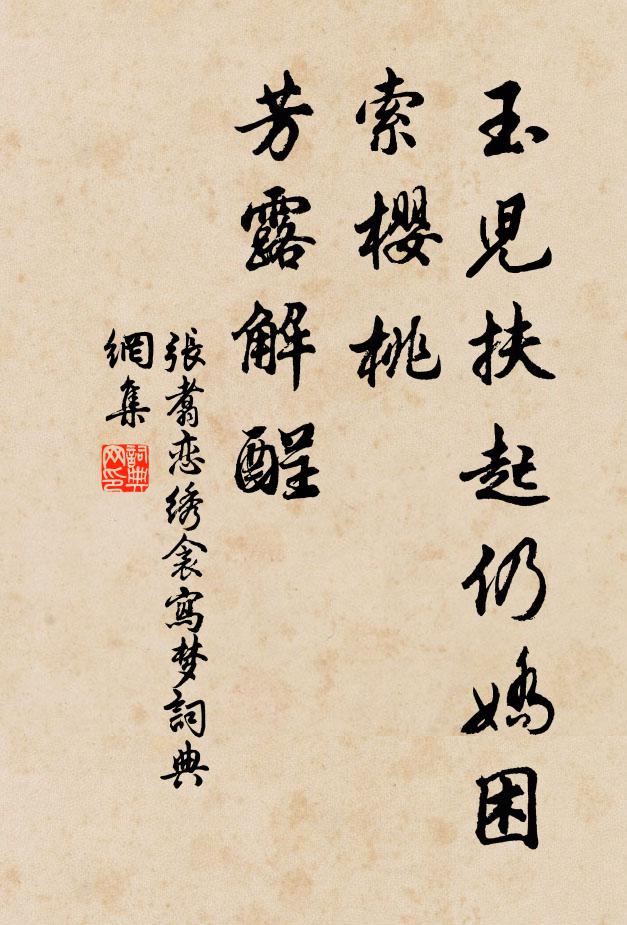 玉兒扶起仍嬌困
索櫻桃
芳露解酲
張翥恋绣衾寫梦詞典
網集
詞典网印